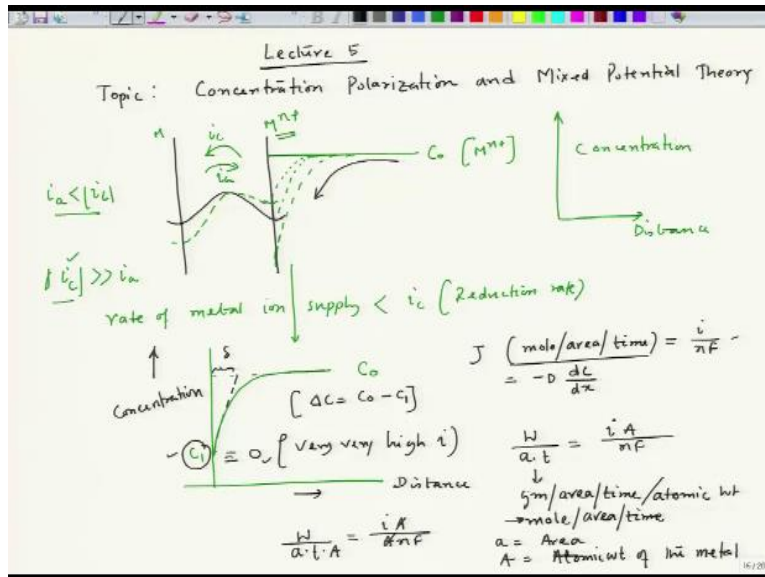 Lecture 5
Topic: Concentration Polarization and Mixed Potential Theory
M
M^n+
i_c
i_a
C_o [M^n+]
Concentration
Distance
i_a < |i_c|
|i_c| >> i_a
rate of metal ion supply < i_c (Reduction rate)
δ
C_o
Concentration
[ΔC = C_o - C_1]
C_1 = 0, (very very high i)
Distance
W/a.t.A = iA/AnF
J (mole/area/time) = i/nF
= -D dc/dx
W/a.t = iA/nF
gm/area/time/atomic wt
→mole/area/time
a = Area
A = Atomic wt of the metal